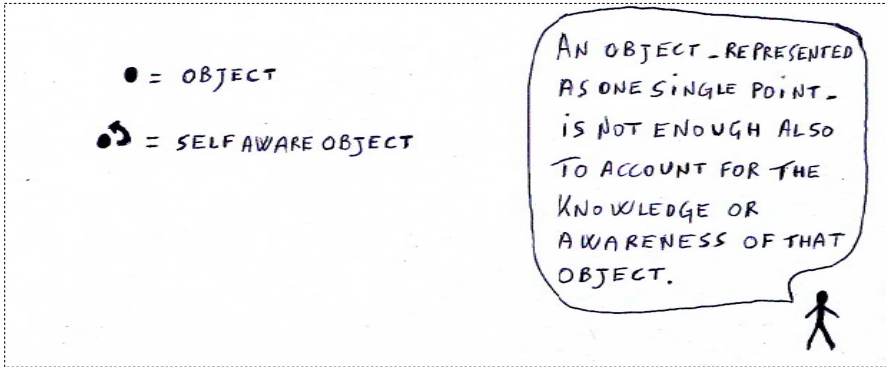 = OBJECT
= SELF AWARE OBJECT
AN OBJECT - REPRESENTED
AS ONE SINGLE POINT -
IS NOT ENOUGH ALSO
TO ACCOUNT FOR THE
KNOWLEDGE OR
AWARENESS OF THAT
OBJECT.